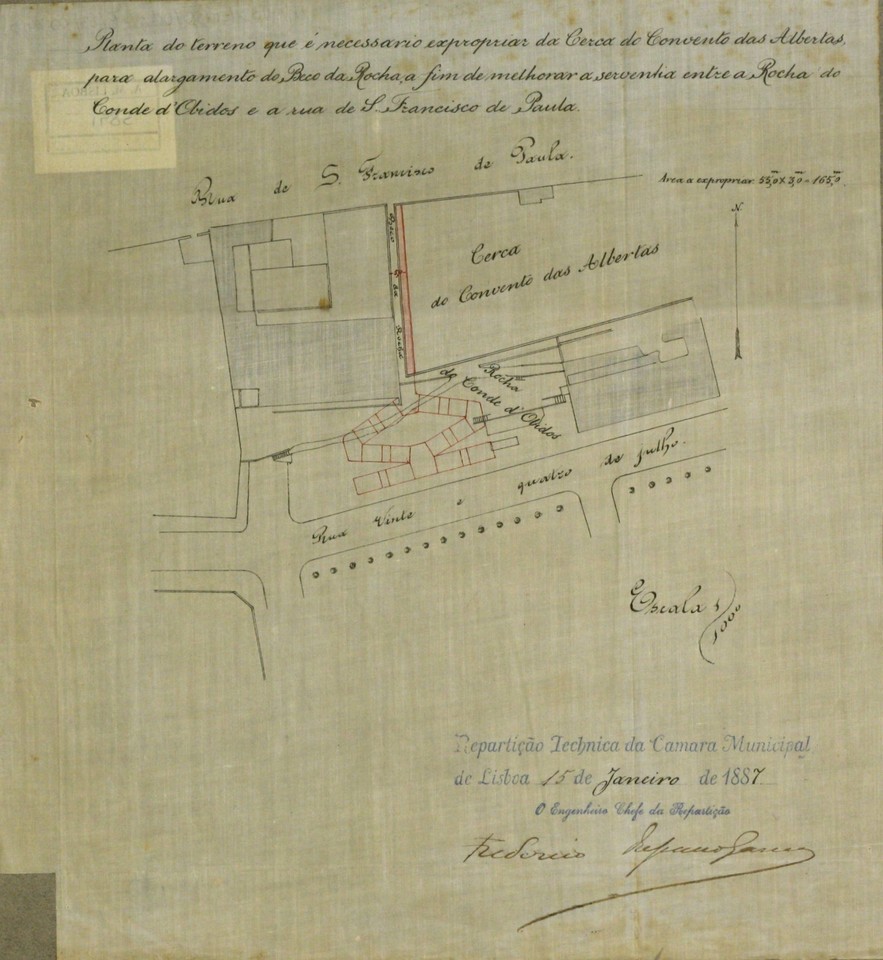 Planta do terreno que é necessario expropriar da Cerca do Convento das Albertas,
para alargamento do Beco da Rocha, a fim de melhorar a serventia entre a Rocha do
Conde d'Obidos e a rua de S. Francisco de Paula.
Rua de S. Francisco de Paula.
Area a expropriar 55,0 x 3,0 = 165,0
N.
Cerca
do Convento das Albertas
Beco da Rocha
Rocha
do Conde d'Obidos
Rua Vinte e quatro de Julho.
Escala 1/1000
Repartição Technica da Camara Municipal
de Lisboa 15 de Janeiro de 1887.
O Engenheiro Chefe da Repartição
Frederico